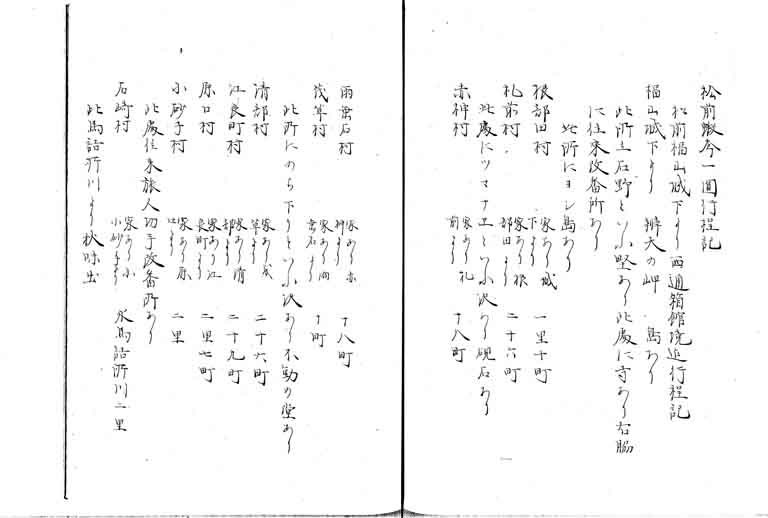 松前蝦夷一圓行程記
松前福山城下より西通箱館境迄行程記
福山城下より 辨天の岬 島あり
此所立石野といふ野あり此處に寺あり右脇
に往来改番所あり
此所にヨシ島あり
根部田村 家あり城下より 一里十町
札前村 家あり根部田より 二十六町
此處にツマナエといふ沢あり硯石あり
赤神村 家あり札前より 十八町
雨垂石村 家あり赤神より 十八町
茂草村 家あり雨垂石より 十町
此所にのら下りといふ沢あり不動の堂あり
清部村 家あり茂草より 二十六町
江良町村 家あり清部より 二十九町
原口村 家あり江良町より 二里七町
小砂子村 家あり原口より 二里
此處往来旅人切手改番所あり
石崎村 家あり小砂子より 永馬詰所川二里
此馬詰所川より秋味出